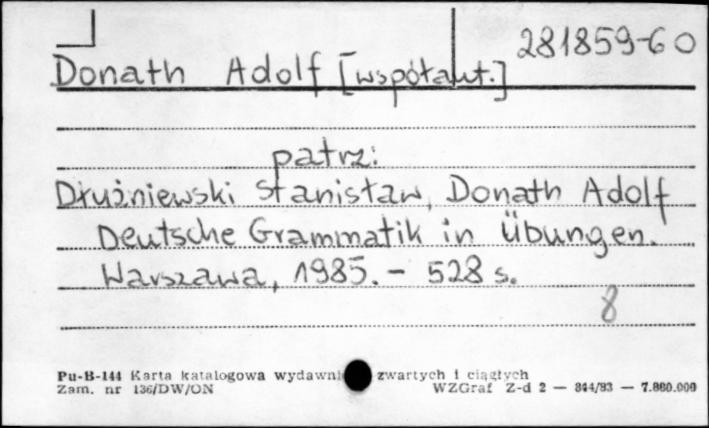 281859-60
Donath Adolf [współaut.]
patrz:
Dłużniewski Stanisław, Donath Adolf
Deutsche Grammatik in Übungen.
Warszawa, 1985. - 528 s.
8
Pu-B-144 Karta katalogowa wydawni zwartych i ciągłych
Zam. nr 136/DW/ON WZGraf Z-d 2 — 844/83 — 7.880.000